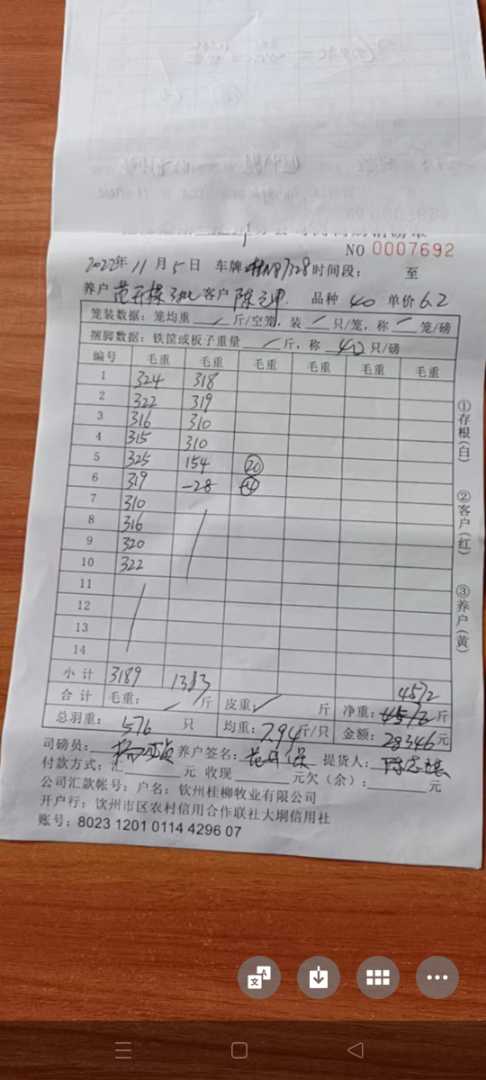 NO 0007692
2022年 11月5日 车牌 7328 时间段： 至
养户 客户 陈 品种 40 单价 6.2
笼装数据：笼均重 / 斤/空笼，装 / 只/笼，称 / 笼/磅
捆脚数据：铁筐或板子重量 / 斤，称 40 只/磅
编号 毛重 毛重 毛重 毛重 毛重 毛重
1 324 318
2 322 319
3 316 310
4 315 310
5 325 154 20
6 319 -28
7 310
8 316
9 320
10 322
11
12
13
14
小计 3189 1383 4572
合计 毛重： / 斤 皮重： / 斤 净重：4572 斤
总羽重： 576 只 均重：7.94 斤/只 金额：28346 元
司磅员： 养户签名： 提货人：
付款方式：汇 元 收现 元欠（余）： 元
公司汇款帐号：户名：钦州桂柳牧业有限公司
开户行：钦州市区农村信用合作联社大垌信用社
账号：8023 1201 0114 4296 07
①存根（白）
②客户（红）
③养户（黄）